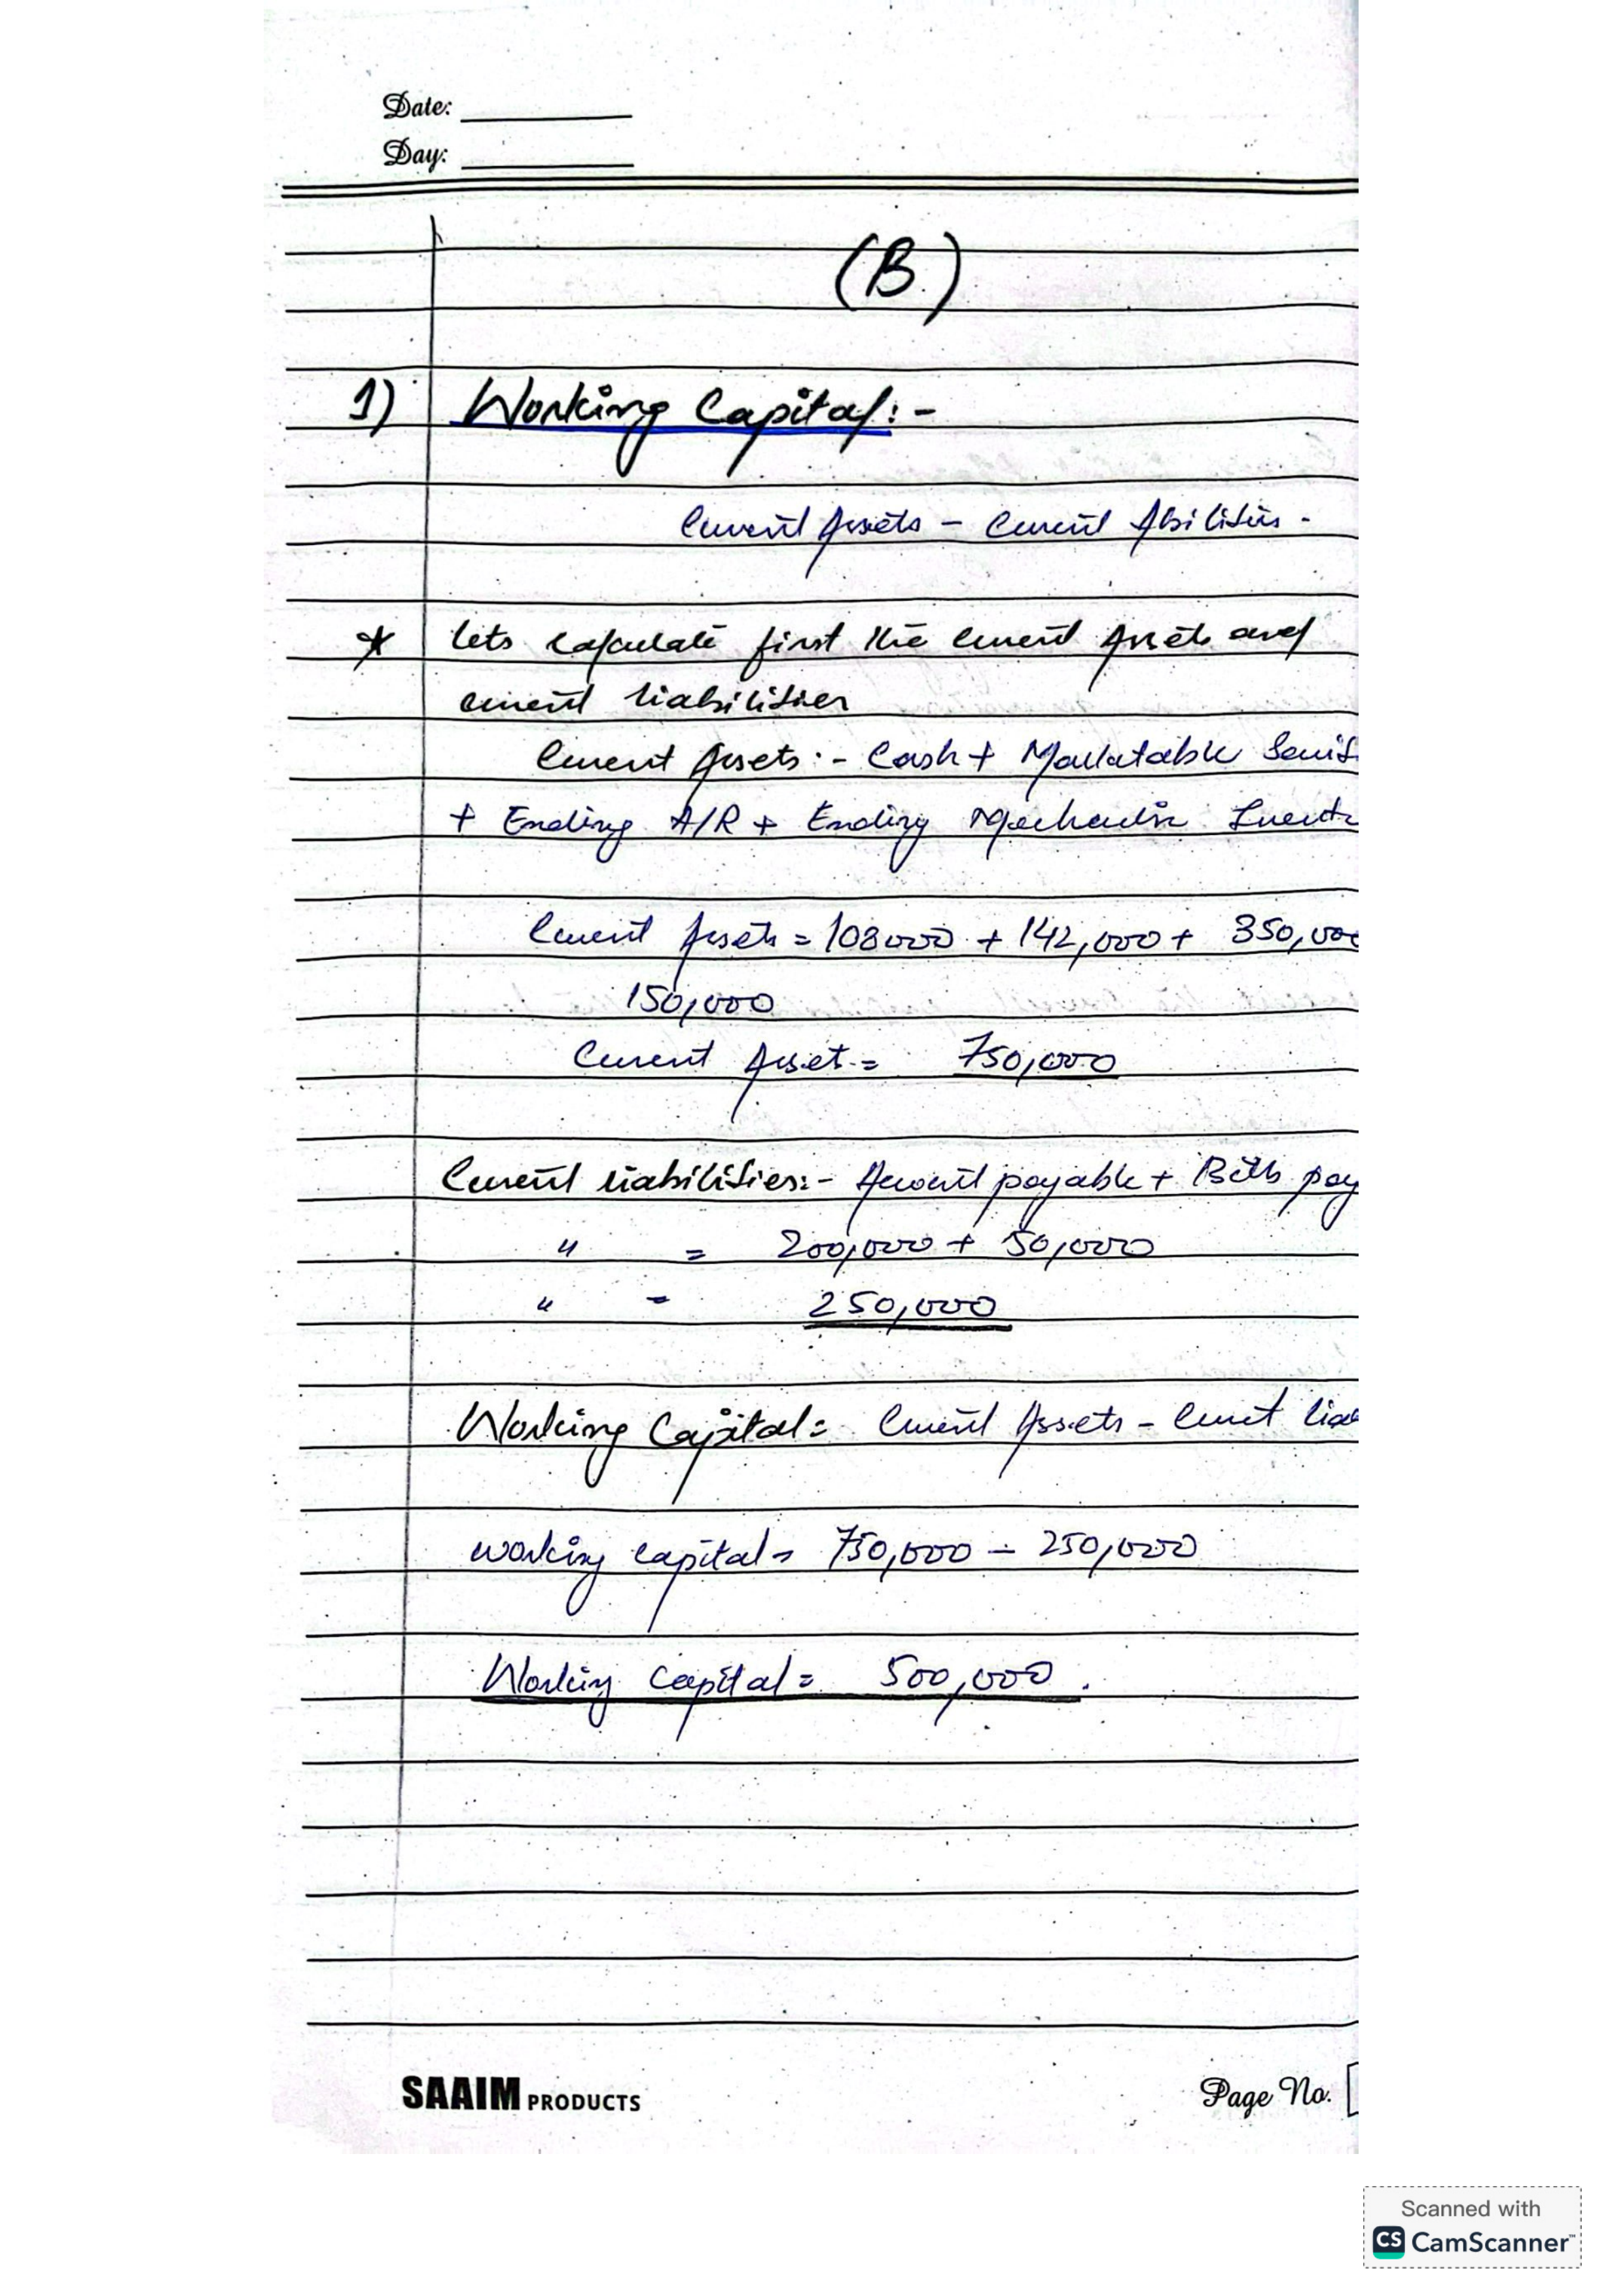 Date:
Day:
(B)
1) Working Capital:-
Current Assets - Current Abilities.
* lets calculate first the current Assets and
current liabilities
Current Assets:- Cash + Marketable Secuit
+ Ending A/R + Ending Inevt
Current Assets = 108000 + 142,000 + 350,000
150,000
Current Asset = 750,000
Current liabilities:- Account payable + Bills pay
" = 200,000 + 50,000
" = 250,000
Working Capital = Current Assets - Curret lia
working capital = 750,000 - 250,000
Working Capital = 500,000.
SAAIM PRODUCTS
Page No.
Scanned with
CS CamScanner™